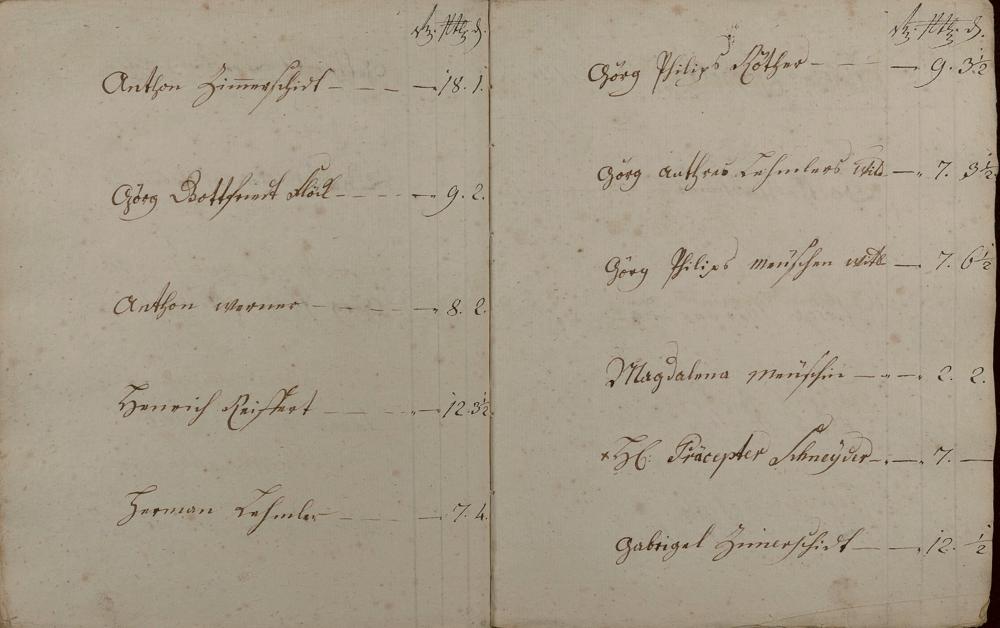 Anthon Zimmerschidt — — — — 18. 1.
Görg Gottfriedt Flöck — — — — 9. 2.
Anthon Werner — — — — 8. 2.
Henrich Reissert — — — — 12. 3½
Herman Lehmler — — — — 7. 4.
Görg Philips Röther — — — 9. 3½
Görg Anthres Lehmlers Witb — 7. 3½
Görg Philips Meüschen Witb — 7. 6½
Magdalena Meüschin — — 2. 2.
+ H: Präcepter Schneyder — — 7. —
Gabrigel Zimerschidt — — 12. ½